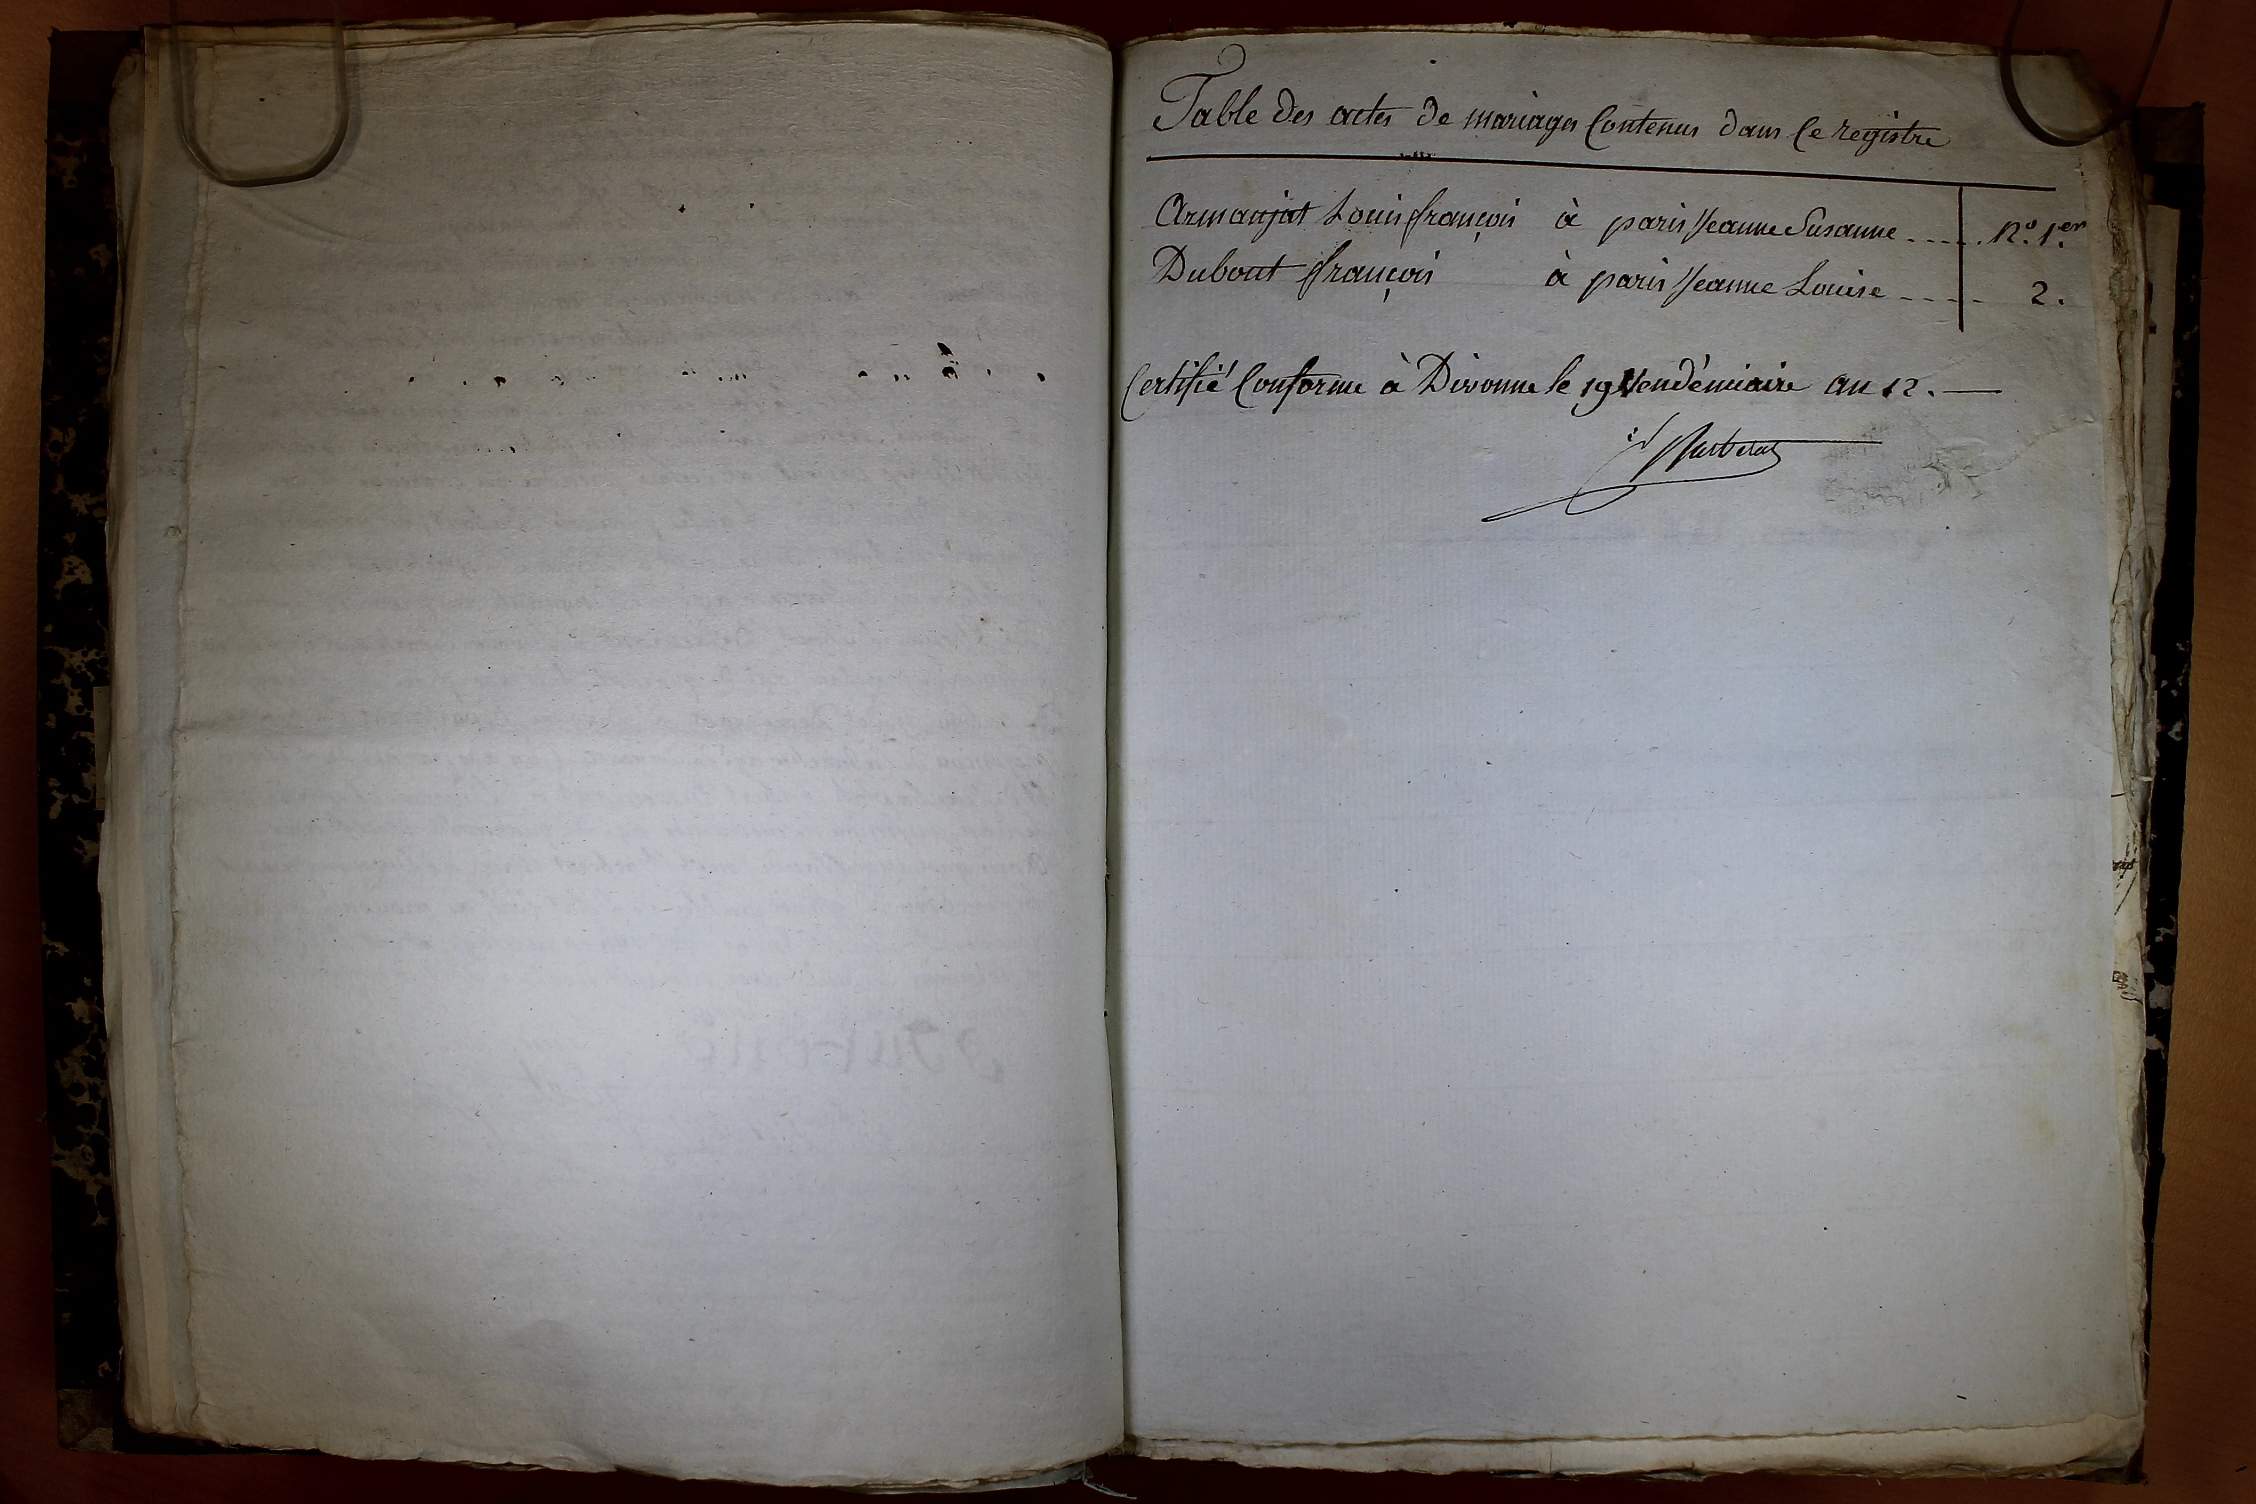 Table des actes de mariages Contenus dans Ce registre
Armanjat Louis françois à paris Jeanne Susanne ..... N.º 1.er
Dubout françois à paris Jeanne Louise ..... 2.
Certifié Conforme à Divonne le 19 Vendémiaire an 12. —